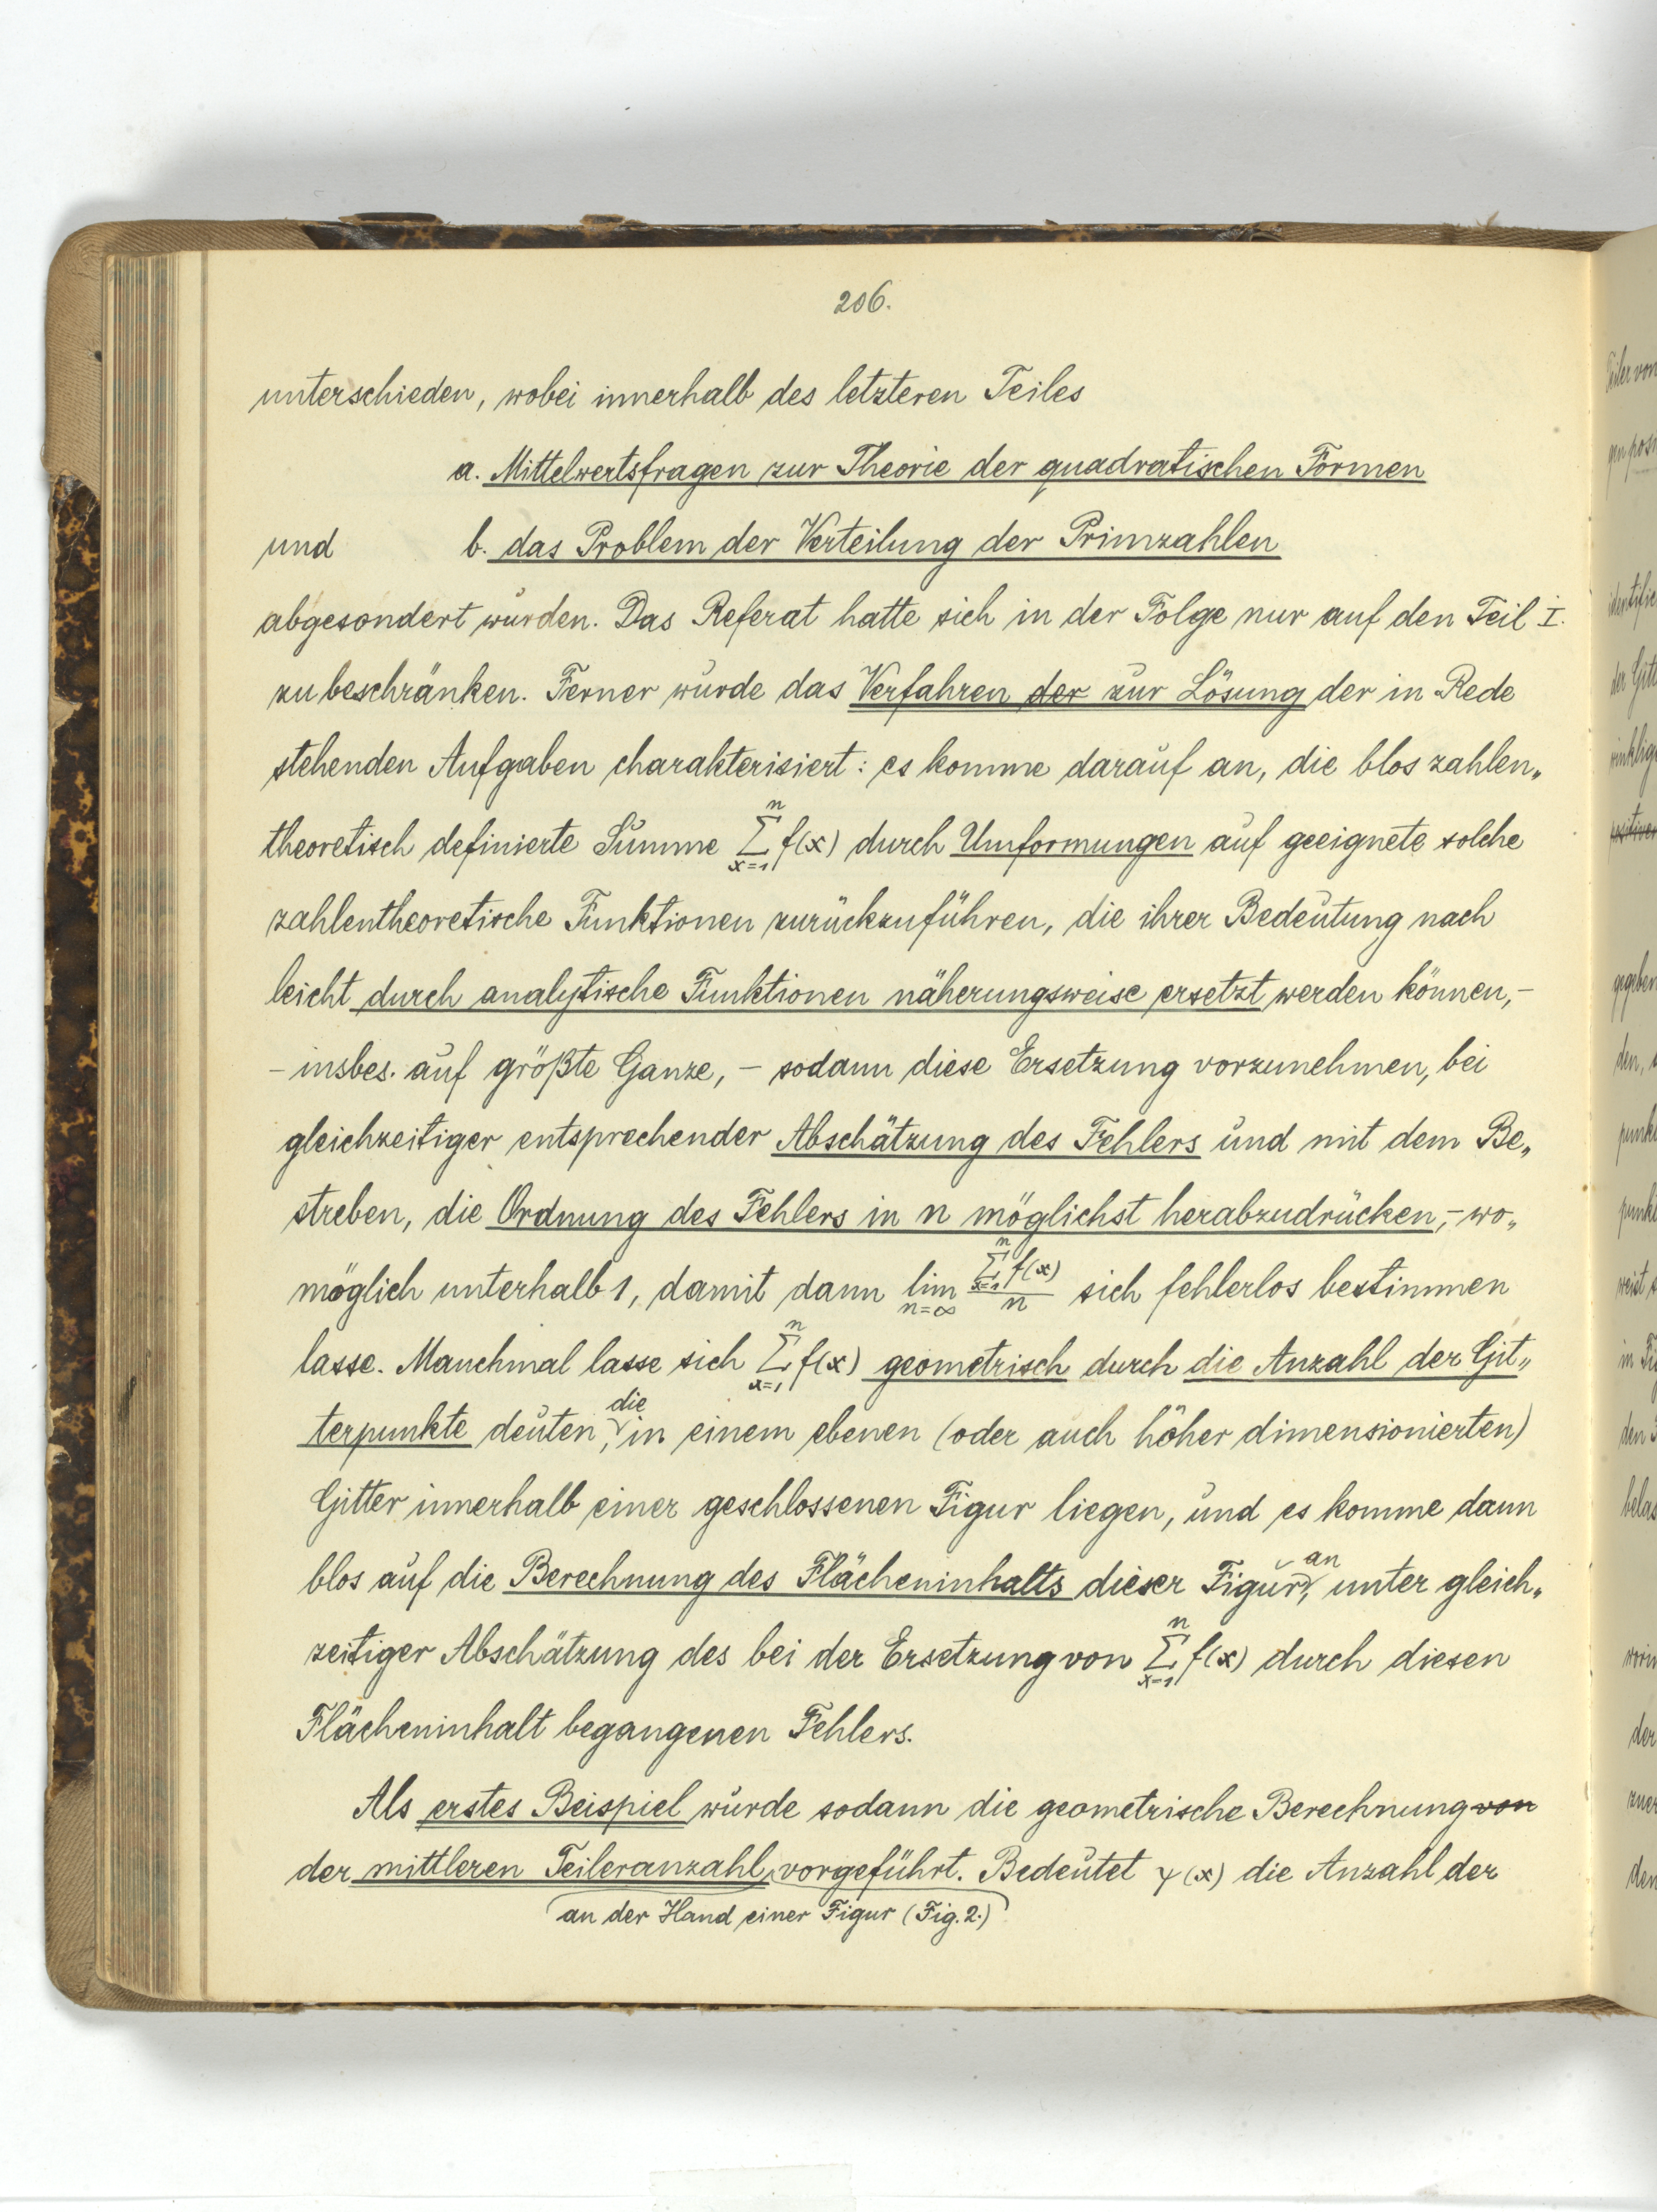 206.
unterschieden, wobei innerhalb des letzteren Teiles
a. Mittelwertsfragen zur Theorie der quadratischen Formen
und b. das Problem der Verteilung der Primzahlen
abgesondert wurden. Das Referat hatte sich in der Folge nur auf den Teil I.
zu beschränken. Ferner wurde das Verfahren der zur Lösung der in Rede
stehenden Aufgaben charakterisiert: es komme darauf an, die blos zahlen„
theoretisch definierte Summe \sum_{x=1}^{n} f(x) durch Umformungen auf geeignete solche
zahlentheoretische Funktionen zurückzuführen, die ihrer Bedeutung nach
leicht durch analytische Funktionen näherungsweise ersetzt werden können,–
– insbes. auf größte Ganze, – sodann diese Ersetzung vorzunehmen, bei
gleichzeitiger entsprechender Abschätzung des Fehlers und mit dem Be„
streben, die Ordnung des Fehlers in n möglichst herabzudrücken,– wo„
möglich unterhalb 1, damit dann \lim_{n=∞} \frac{\sum_{x=1}^{n} f(x)}{n} sich fehlerlos bestimmen
lasse. Manchmal lasse sich \sum_{x=1}^{n} f(x) geometrisch durch die Anzahl der Git„
terpunkte deuten, die in einem ebenen (oder auch höher dimensionierten)
Gitter innerhalb einer geschlossenen Figur liegen, und es komme dann
blos auf die Berechnung des Flächeninhalts dieser Figur an, unter gleich„
zeitiger Abschätzung des bei der Ersetzung von \sum_{x=1}^{n} f(x) durch diesen
Flächeninhalt begangenen Fehlers.
Als erstes Beispiel wurde sodann die geometrische Berechnung von
der mittleren Teileranzahl vorgeführt. Bedeutet γ(x) die Anzahl der
an der Hand einer Figur (Fig. 2.)